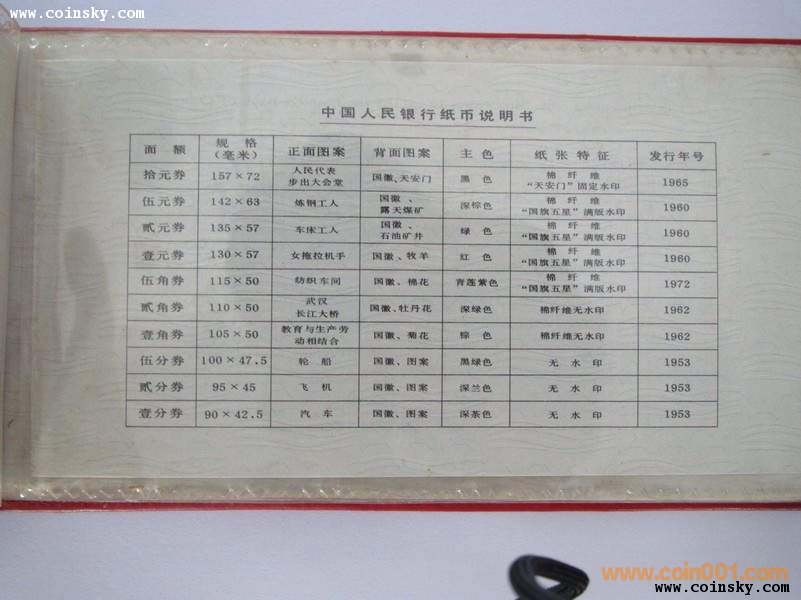 www.coinsky.com
www.coinsky.com
中国人民银行纸币说明书
面额 规格（毫米） 正面图案 背面图案 主色 纸张特征 发行年号
拾元券 157×72 人民代表步出大会堂 国徽、天安门 黑色 棉纤维“天安门”固定水印 1965
伍元券 142×63 炼钢工人 国徽、露天煤矿 深棕色 棉纤维“国旗五星”满版水印 1960
贰元券 135×57 车床工人 国徽、石油矿井 绿色 棉纤维“国旗五星”满版水印 1960
壹元券 130×57 女拖拉机手 国徽、牧羊 红色 棉纤维“国旗五星”满版水印 1960
伍角券 115×50 纺织车间 国徽、棉花 青莲紫色 棉纤维“国旗五星”满版水印 1972
贰角券 110×50 武汉长江大桥 国徽、牡丹花 深绿色 棉纤维无水印 1962
壹角券 105×50 教育与生产劳动相结合 国徽、菊花 棕色 棉纤维无水印 1962
伍分券 100×47.5 轮船 国徽、图案 黑绿色 无水印 1953
贰分券 95×45 飞机 国徽、图案 深兰色 无水印 1953
壹分券 90×42.5 汽车 国徽、图案 深茶色 无水印 1953
www.coin001.com
www.coinsky.com